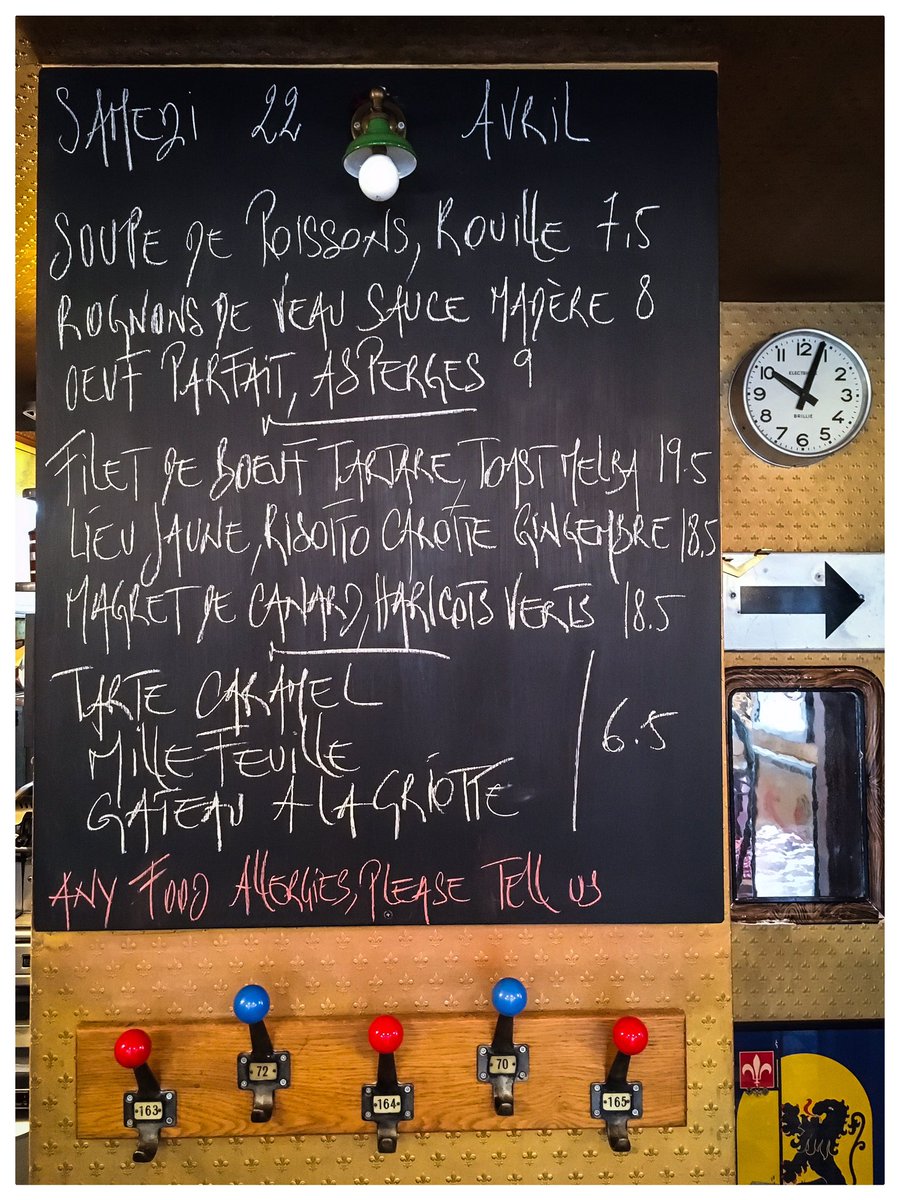 SAMEDI 22 AVRIL
SOUPE DE POISSONS, ROUILLE 7,5
ROGNONS DE VEAU SAUCE MADÈRE 8
OEUF PARFAIT, ASPERGES 9
FILET DE BOEUF TARTARE, TOAST MELBA 19.5
LIEU JAUNE, RISOTTO CAROTTE GINGEMBRE 18.5
MAGRET DE CANARD, HARICOTS VERTS 18.5
TARTE CARAMEL
MILLE FEUILLE
6.5
GATEAU A LA GRIOTTE
ANY FOOD ALLERGIES, PLEASE TELL US
12 1 2 3 4 5 6 7 8 9 10 11
BRILLIÉ
163
72
164
70
165